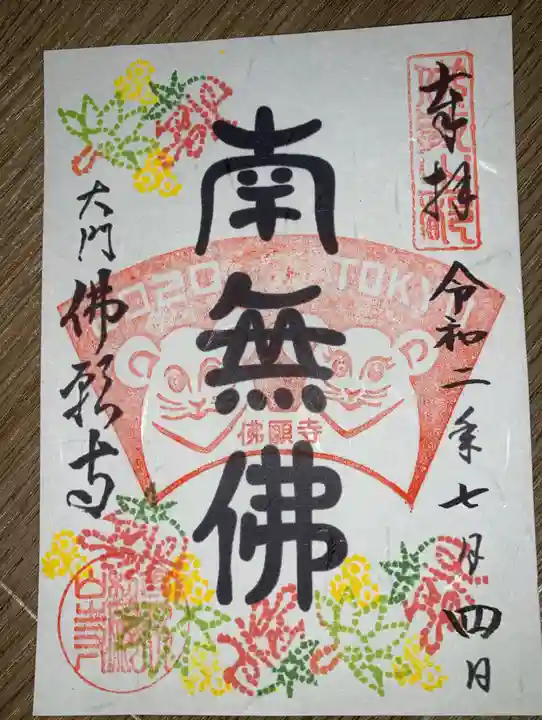 奉拝
令和二年七月四日
南無佛
2020 TOKYO
佛願寺
大門
佛願寺